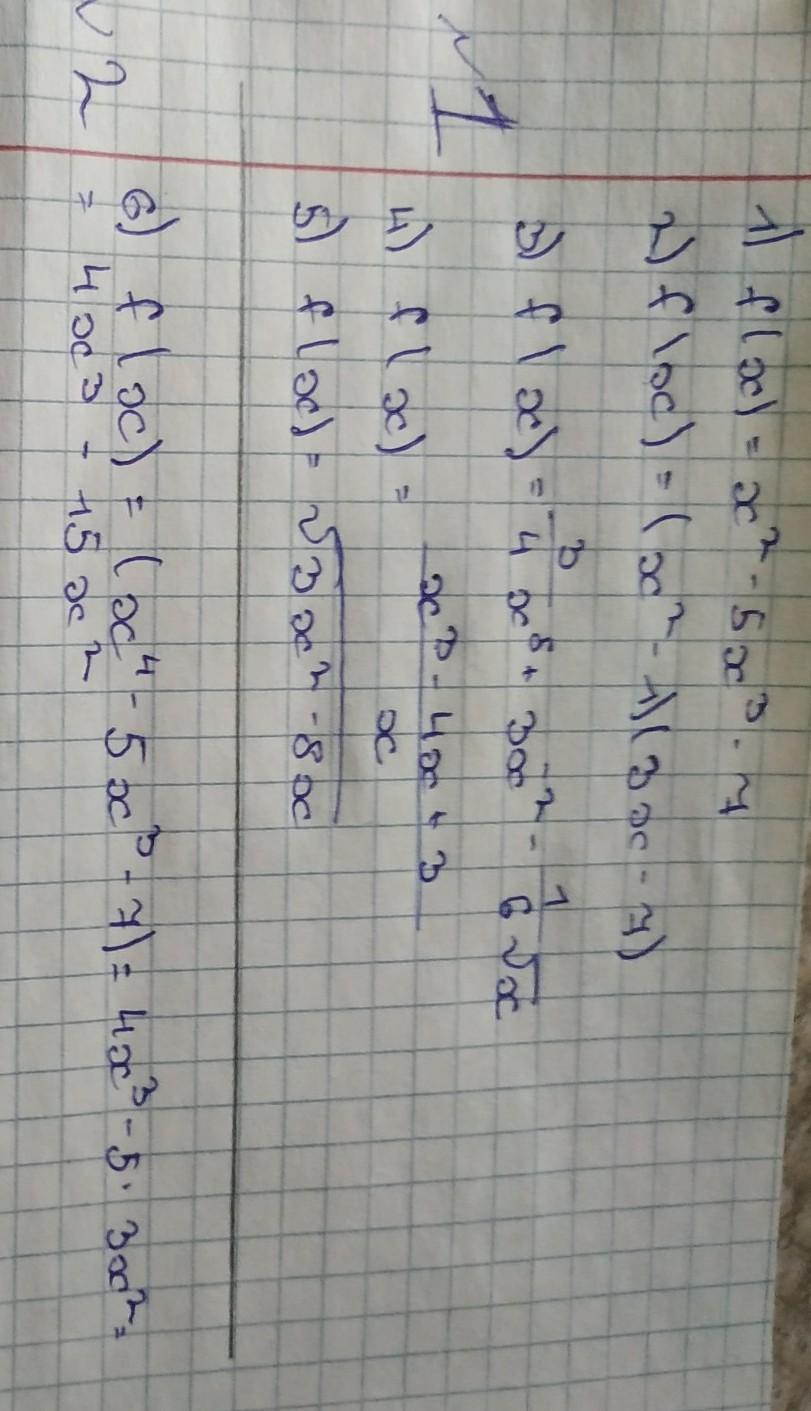 №1
1) f(x) = x² - 5x³ - 7
2) f(x) = (x² - 1)(3x - 7)
3) f(x) = 3/4 x⁸ + 3x⁻² - 1/6 √x
4) f(x) = (x³ - 4x + 3)/x
5) f(x) = √(3x² - 8x)
√2
6) f(x) = (x⁴ - 5x³ - 7) = 4x³ - 5 · 3x² =
= 4x³ - 15x²